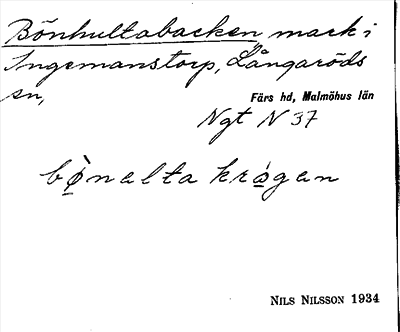 Bönhultabacken mark i
Ingemanstorp, Långaröds
sn,
Färs hd, Malmöhus län
Ngt N 37
bø̀nalta krågan
NILS NILSSON 1934